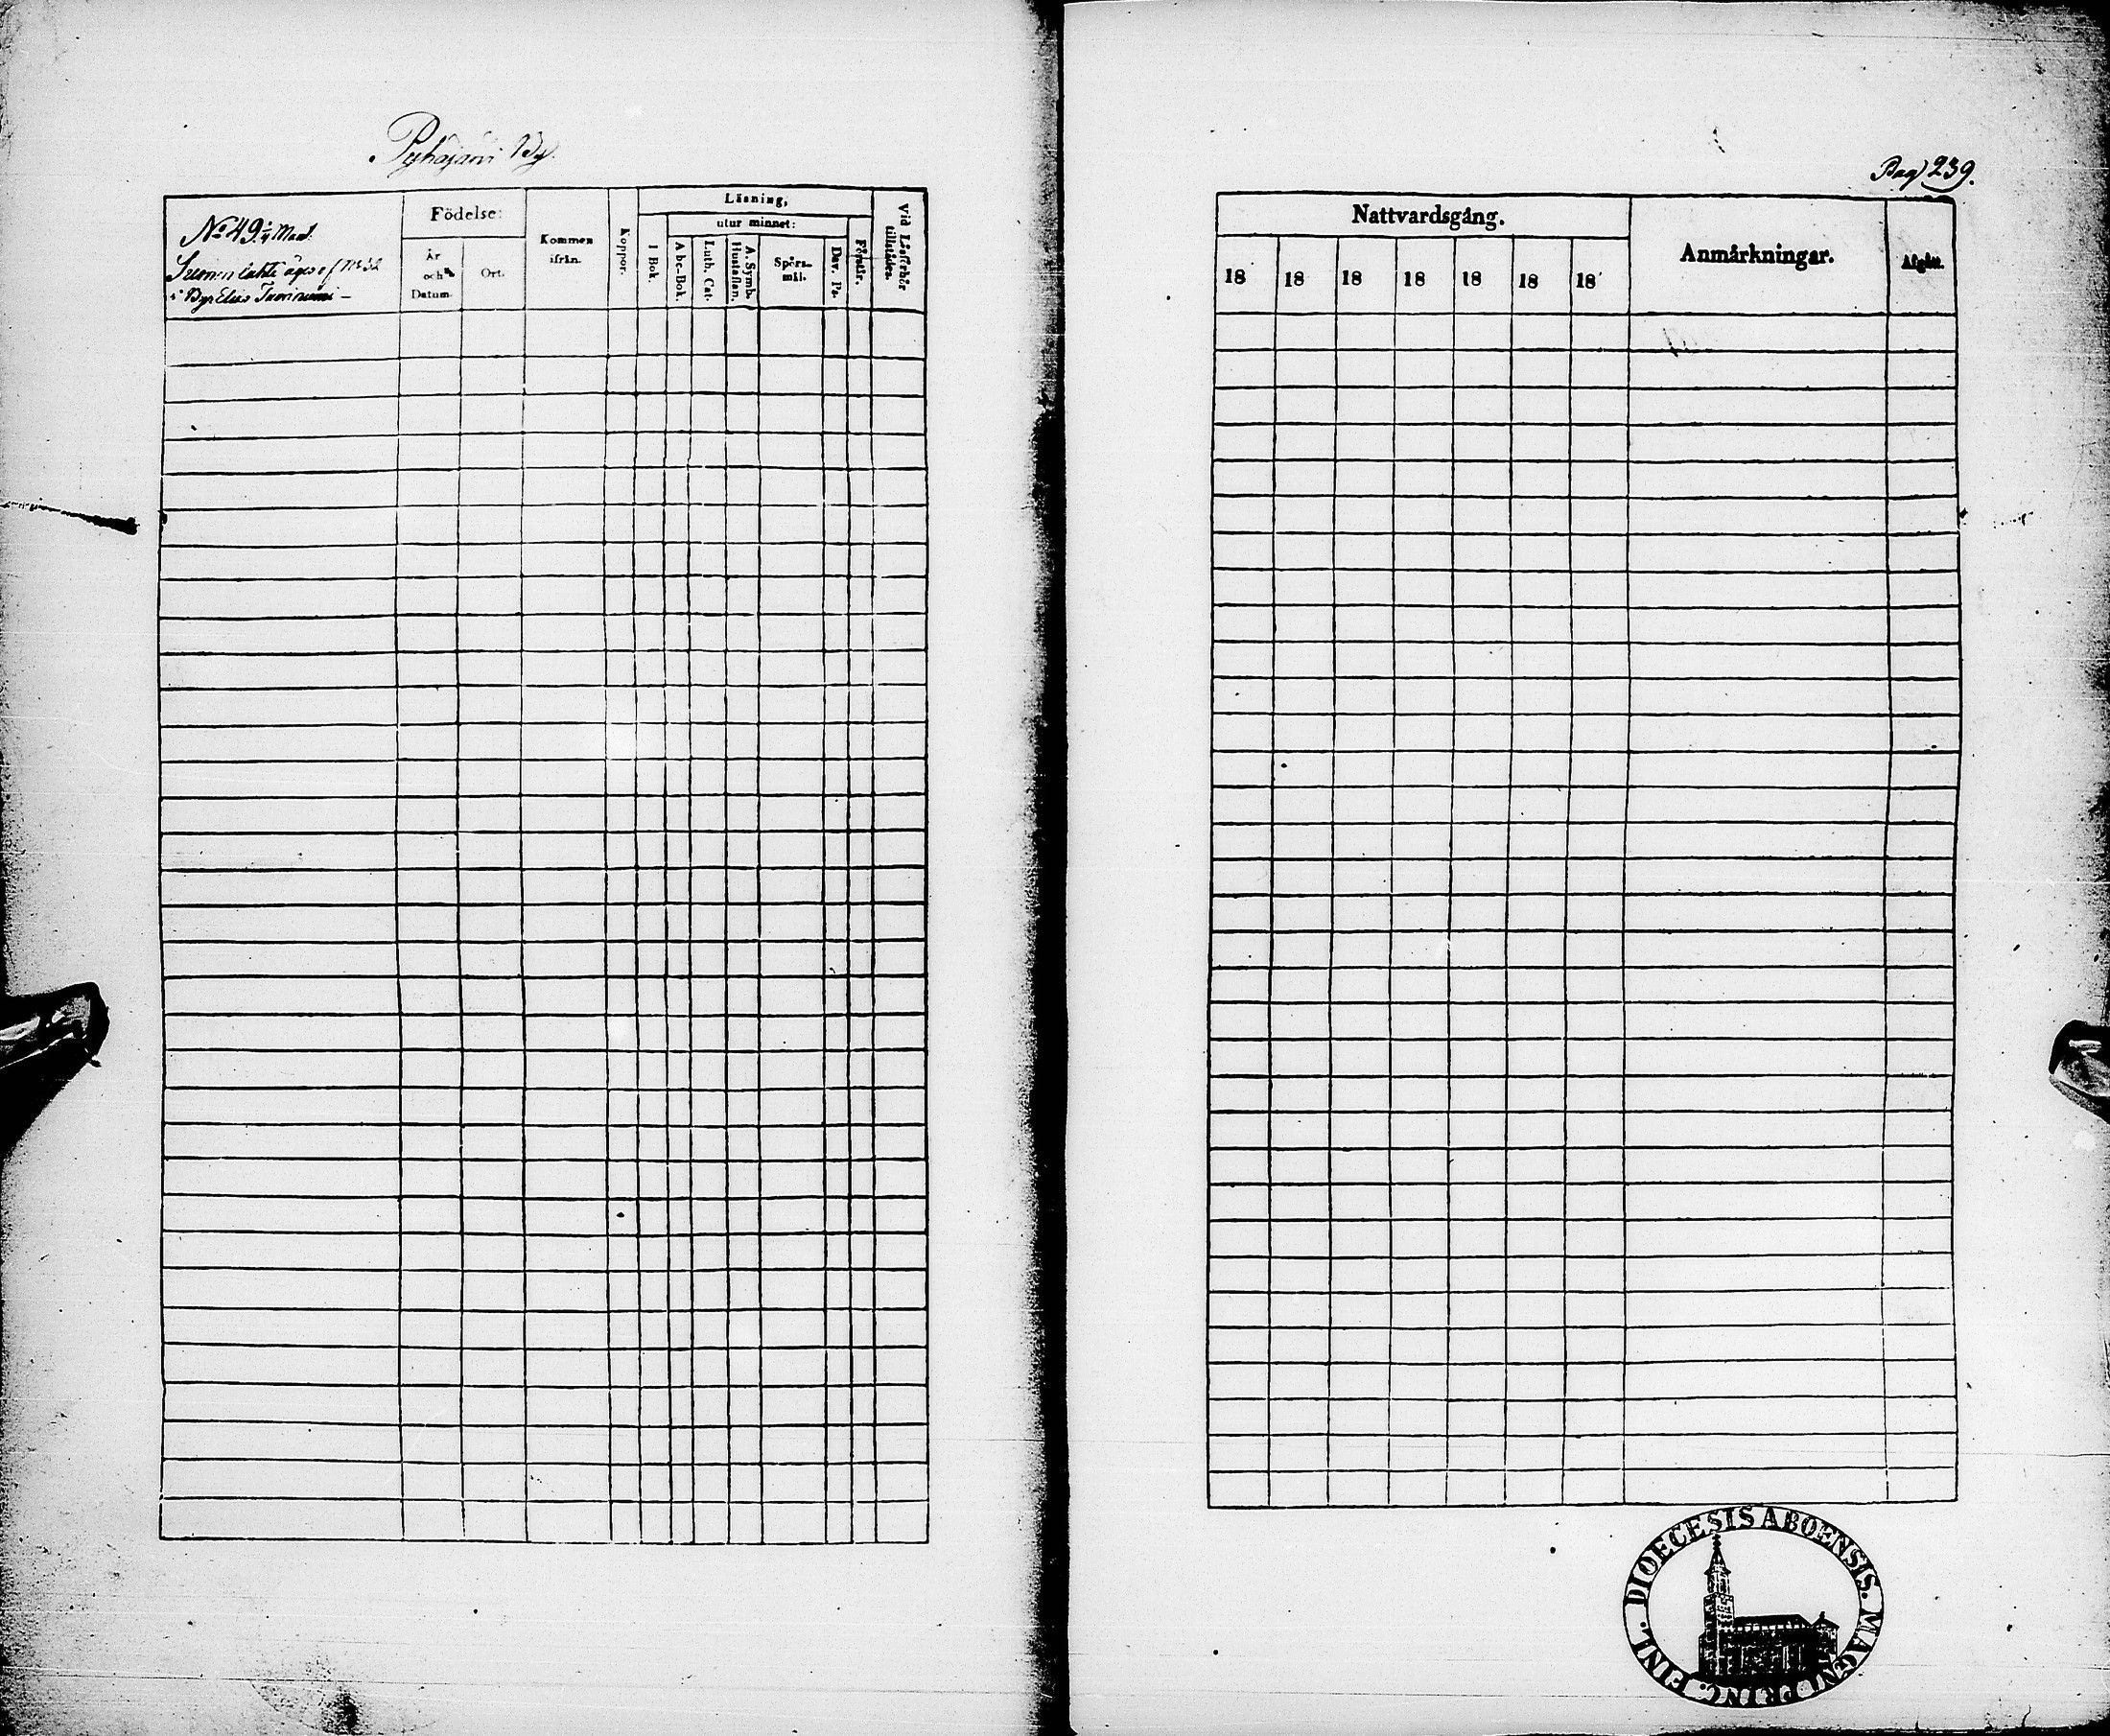 Pyhäjärvi By.
No 49. 1/4 Mant.
lahti äges af No 32
Elias
Födelse:
År och Datum.
Ort.
Kommen ifrån.
Koppor.
Läsning,
utur minnet:
I Bok.
Abc-Bok.
Luth. Cat.
A. Symb. Hustaflan.
Spörs-mål.
Dav. Ps.
Förstår.
Vid Läseförhör tillstädes.
Pag 239.
Nattvardsgång.
18 18 18 18 18 18 18
Anmärkningar.
Afgått.
DIOECESIS ABOENSIS. MAGNI PRINC. FINL.